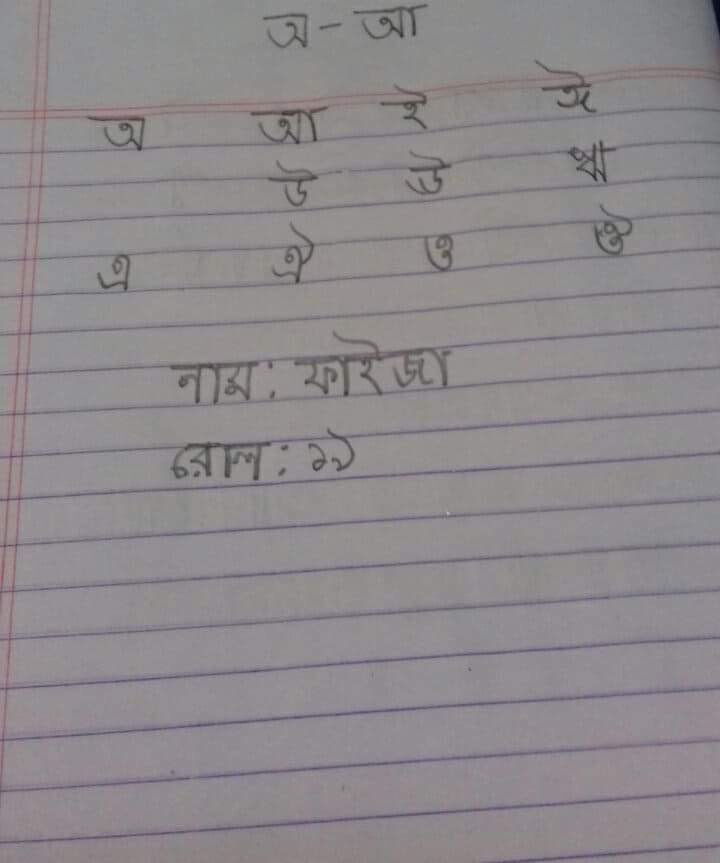 অ - আ
অ আ ই ঈ
উ ঊ ঋ
এ ঐ ও ঔ
নাম: ফাইজা
রোল: ১৯